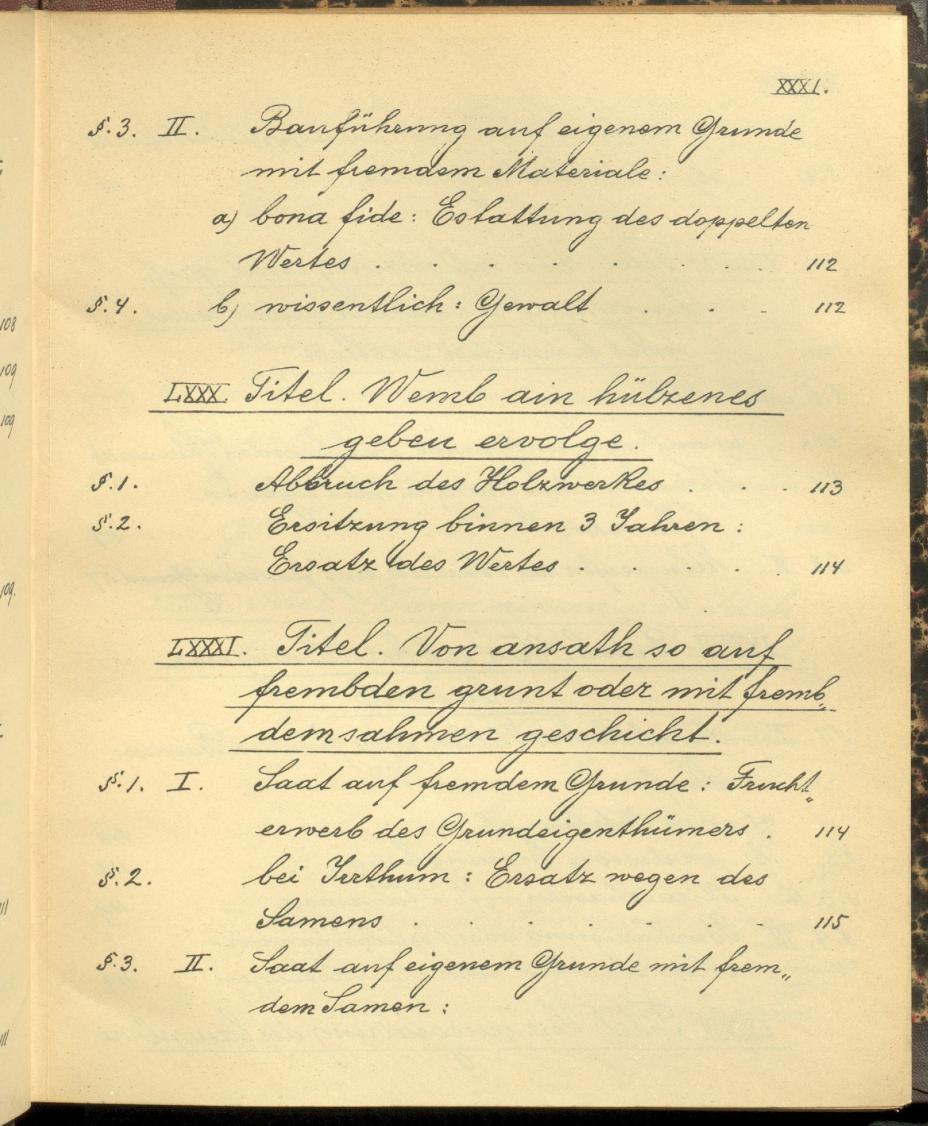 XXXI.
§.3. II. Bauführung auf eigenem Grunde
mit fremdem Materiale:
a) bona fide: Estattung des doppelten
Wertes . . . . . . . . 112
§.4. b) wissentlich: Gewalt . . . 112
LXXX. Titel. Wemb ain hülzenes
geben ervolge.
§.1. Abbruch des Holzwerkes . . . 113
§.2. Ersitzung binnen 3 Jahren:
Ersatz des Wertes . . . . 114
LXXXI. Titel. Von ansath so auf
frembden grunt oder mit fremb„
dem sahmen geschicht.
§.1. I. Saat auf fremdem Grunde: Frucht„
erwerb des Grundeigenthümers . 114
§.2. bei Irrthum: Ersatz wegen des
Samens . . . . . . . 115
§.3. II. Saat auf eigenem Grunde mit frem„
dem Samen:
108
109
109
109.
111
111